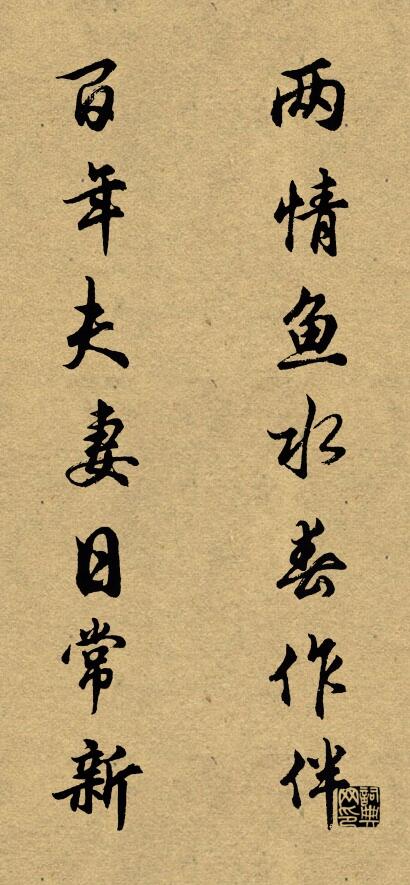 两情鱼水春作伴
百年夫妻日常新
詞典网印